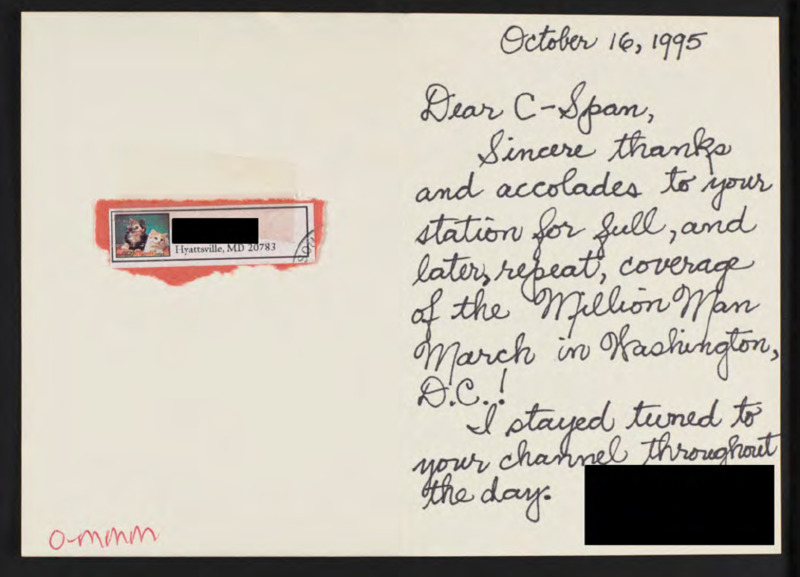 Hyattsville, MD 20783
O-MMM
October 16, 1995
Dear C-Span,
Sincere thanks
and accolades to your
station for full, and
later, repeat, coverage
of the Million Man
March in Washington,
D.C.!
I stayed tuned to
your channel throughout
the day.